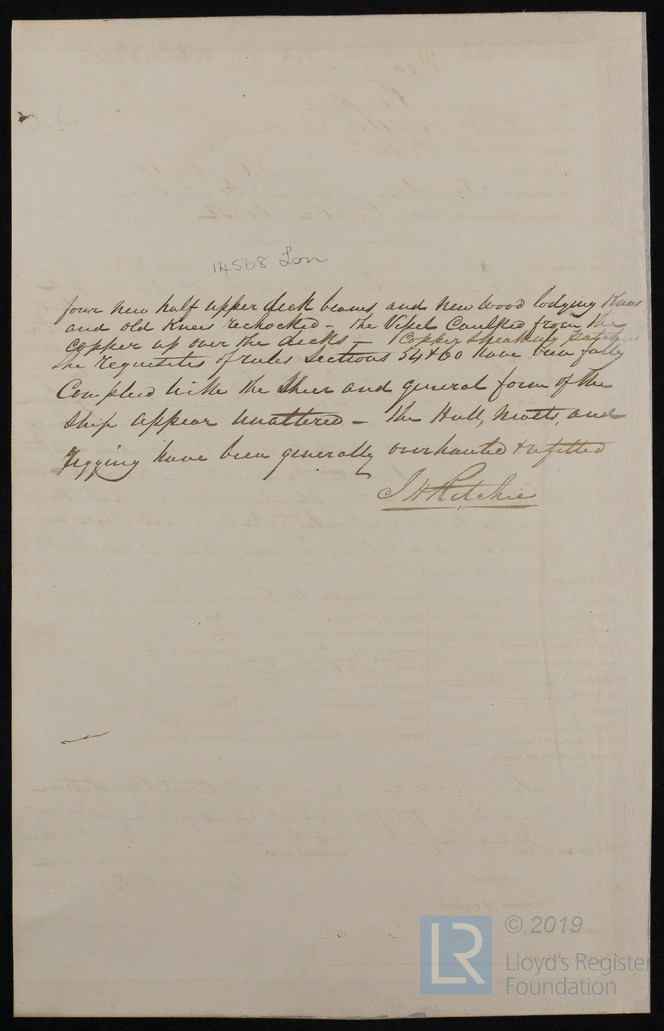 14568 Lon
four new half upper deck beams and new wood lodging Knees
and old Knees rechocked – the Vessel Caulked from the
Copper up over the decks – Copper sheathing
the requisites of rules Sections 54 & 60 have been fully
Complied with the Sheer and general form of the
Ship appear unaltered – the Hull, Masts, and
rigging have been generally overhauled & refitted
J H Ritchie
© 2019
LR
Lloyd's Register
Foundation